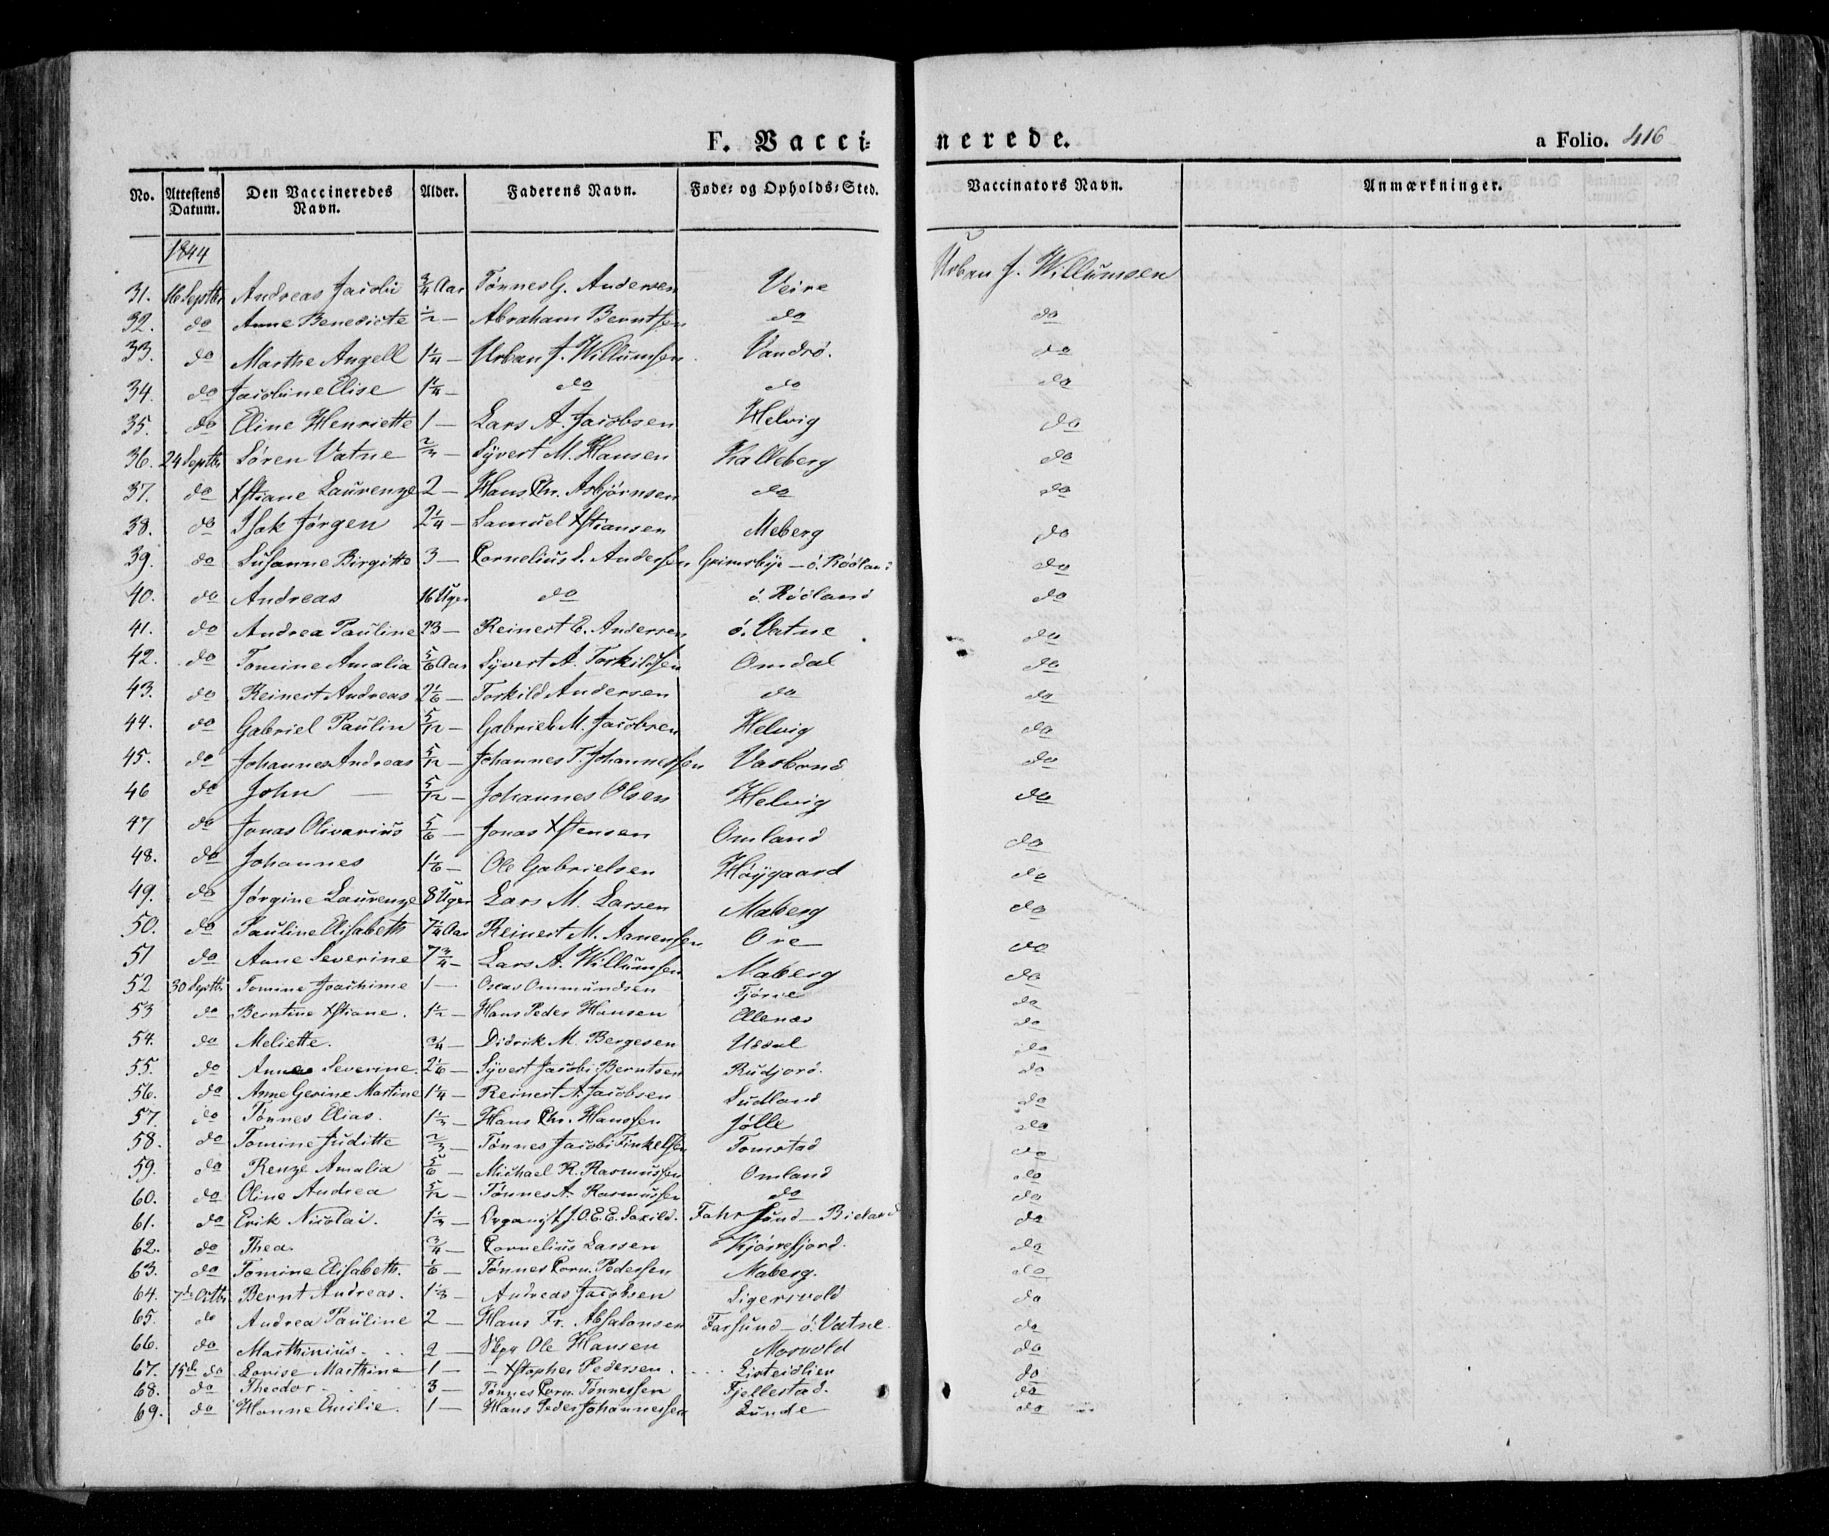 F. Vacci- nerede. a Folio. 416
No. Attestens Datum. Den Vaccineredes Navn. Alder. Faderens Navn. Føde- og Opholds-Sted. Vaccinators Navn. Anmærkninger.
1844
31. 16 Septbr Andreas Jacobi 3/4 Aar Tønnes G. Andersen Veire Urban J. Willumsen
32. do Anne Benedicte 1/2 — Abraham Berntsen do do
33. do Marthe Angell 1 1/4 — Urban J. Willumsen Vandrø. do
34. do Jacobine Elise 1 1/4 — do do do
35. do Eline Henriette 1 — Lars A. Jacobsen Helvig do
36. 24 Septbr Søren Vatne 2/3 — Syvert M. Hansen Kalleberg do
37. do Xstiane Laurenze 2 — Hans Chr. Asbjørnsen do do
38. do Isak Jørgen 2 1/4 — Samuel Xstiansen Meberg do
39. do Susanne Birgitte 3 — Cornelius S. Andersen Grimsbye — ø. Röóland do
40. do Andreas 16 Uger do ø. Röóland do
41. do Andrea Pauline 23 — Reinert E. Andersen ø. Vatne do
42. do Tomine Amalia 5/6 Aar Syvert A. Torkildsen Omdal do
43. do Reinert Andreas 2 1/6 — Torkild Andersen do do
44. do Gabriel Paulin 5/12 — Gabriel M. Jacobsen Helvig do
45. do Johannes Andreas 5/12 — Johannes T. Johannessen Vasbond do
46 do John — 5/12 — Johannes Olsen Helvig do
47 do Jonas Olivarius 5/6 — Jonas Xstensen Omland do
48. do Johannes 1 1/6 — Ole Gabrielsen Høygaard do
49. do Jørgine Laurenze 8 Uger Lars M. Larsen Maberg do
50. do Pauline Elisabeth 7 1/4 Aar Reinert M. Aanensen Ore do
51 do Anne Severine 7 3/4 — Lars A. Willumsen Maberg do
52 30 Septbr Tomine Joachime 1 — Oseas Ommundsen Tjørve do
53 do Berntine Xstiane. 1 1/2 — Hans Peder Hansen Ollenæs do
54. do Meliette. 3/4 — Didrik M. Bergesen Uddal do
55. do Anne Severine. 2 1/6 — Syvert Jacobi Berntsen Rudjord. do
56. do Anne Gerine Martine 1 1/4 — Reinert A. Jacobsen Sudland do
57. do Tønnes Elias. 1 1/3 — Hans Chr. Hanssen Jølle do
58. do Tomine Juditte 2/3 — Tønnes Jacobi Finkelsen Tomstad do
59. do Renze Amalia 5/6 — Michael R. Rasmussen Omland do
60. do Oline Andrea 5/12 — Tønnes A. Rasmussen do do
61. do Erik Nicolai. 1 1/3 — Organist J. O. E. E. Saxild. Fahrsund — Bieland do
62. do Thea 3/4 — Cornelius Lassen Kjørrefjord. do
63. do Tomine Elisabeth. 1/6 — Tønnes Corn. Pedersen Maberg. do
64. 7de Octbr. Bernt Andreas. 1 1/3 — Andreas Jacobsen Sigersvold do
65. do Andrea Pauline 2 — Hans Fr. Absalonsen Farsund — ø. Vatne. do
66. do Marthinius. 2 — Skpr Ole Hansen Mosvold do
67. 15de do Lovise Marthine 1 — — Xstopher Pedersen. Listeidlien do
68. do Theodor. 3 — Tønnes Corn. Tønnessen Fjellestad. do
69. do Hanne Emilie. 1 — Hans Peder Johannessen Lunde do